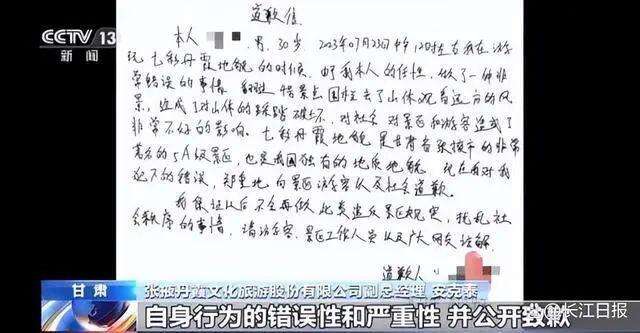 CCTV 13
新闻
道歉信
本人 男，30岁 2023年07月23日中午12时左右我在游
玩七彩丹霞地貌的时候，由于我本人的任性，做了一件非
常错误的事情 翻过 景点围栏去了山体观看远方的风
景，造成了对山体的踩踏破坏，对社会 对景区和游客造成了
非常不好的影响。七彩丹霞地貌是甘肃省张掖市的非常
著名的5A级景区，也是我国独有的地质地貌 现在我对我
犯下的错误，郑重地向景区游客以及社会道歉。
我保证以后不会再做此类违反景区规定，扰乱社
会秩序的事情，请游客 景区工作人员以及广大网友谅解
道歉人：
甘肃
张掖丹霞文化旅游股份有限公司副总经理 安克泰
自身行为的错误性和严重性 并公开致歉
@长江日报